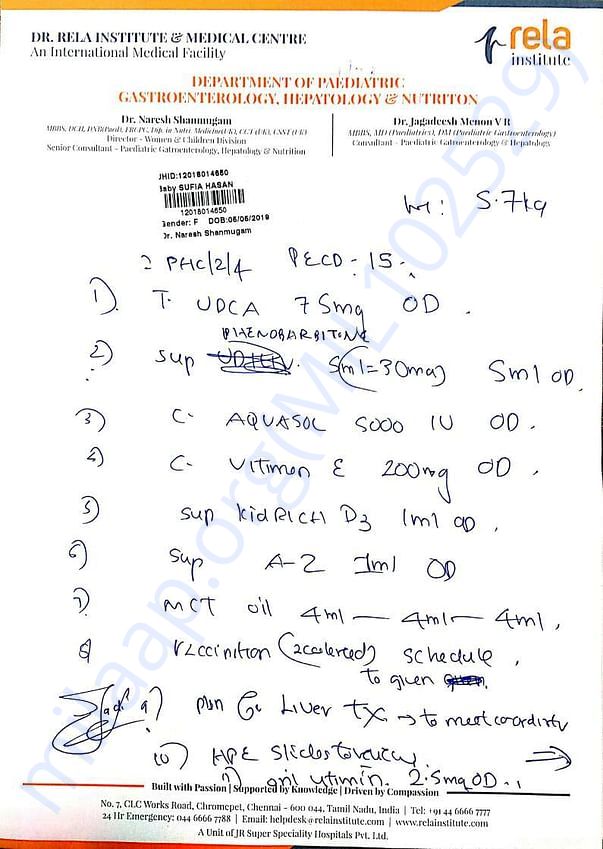 DR. RELA INSTITUTE & MEDICAL CENTRE
An International Medical Facility
rela
institute
DEPARTMENT OF PAEDIATRIC
GASTROENTEROLOGY, HEPATOLOGY & NUTRITON
Dr. Naresh Shanmugam
Director - Women & Children Division
Senior Consultant - Paediatric Gatroenterology, Hepatology & Nutrition
Dr. Jagadeesh Menon V R
MBBS, MD (Paediatrics), DM (Paediatric Gastroenterology)
Consultant - Paediatric Gastroenterology & Hepatology
JHID:12018014650
Baby SUFIA HASAN
12018014650
Gender: F DOB:06/06/2019
Dr. Naresh Shanmugam
Wt: 5.7kg
PELD - 15
1) T. UDCA 75mg OD.
PHENOBARBITONE
2) Sup 5ml=30mg) 5ml OD.
3) C. AQUASOL 5000 IU OD.
4) C. Vitimon E 200mg OD.
5) Sup KidRICH D3 1ml OD.
6) Sup A-Z 1ml OD
7) MCT oil 4ml — 4ml — 4ml,
8) Vaccinition (accelerced) schedule,
to given
9) Plan for Liver TX → to meet
10) HPE Slides
2.5mg OD.
Built with Passion | Supported by Knowledge | Driven by Compassion
No. 7, CLC Works Road, Chromepet, Chennai - 600 044, Tamil Nadu, India | Tel: +91 44 6666 7777
24 Hr Emergency: 044 6666 7788 | Email: helpdesk@relainstitute.com | www.relainstitute.com
A Unit of JR Super Speciality Hospitals Pvt. Ltd.
milaap.org(MIL1025297